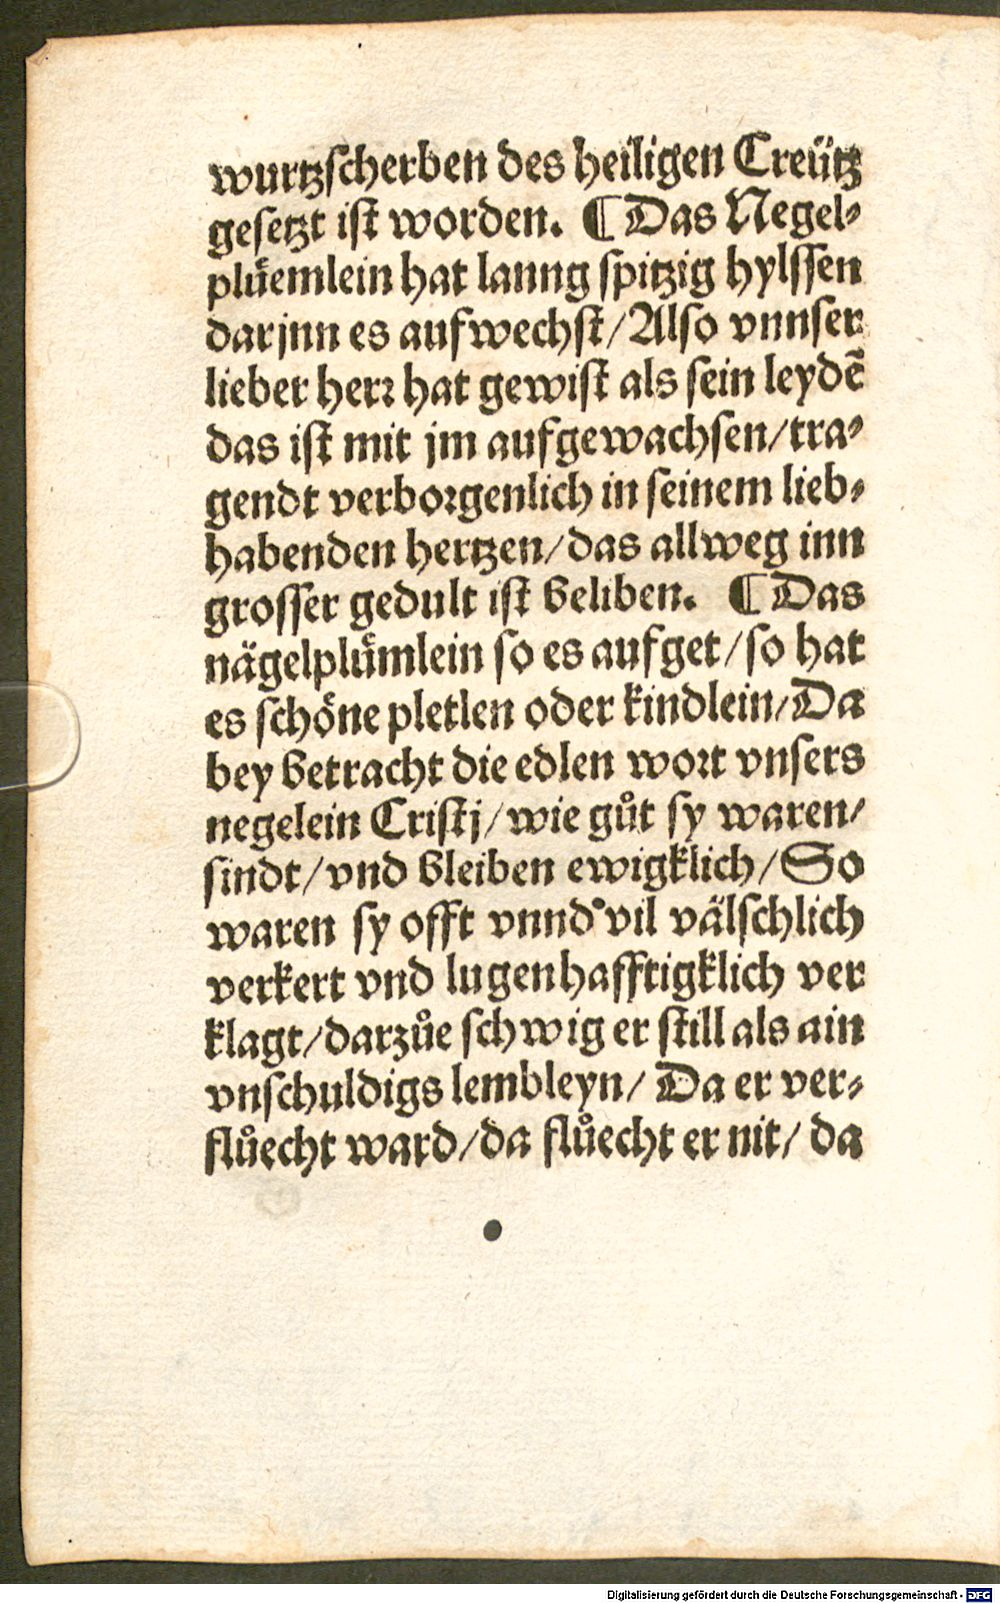 wurtzscherben des heiligen Creütz
gesetzt ist worden. ¶ Das Negel⸗
plüemlein hat lanng spitzig hylssen
darjnn es aufwechst/Also vnnser
lieber herr hat gewist als sein leydē
das ist mit jm aufgewachsen/tra⸗
gendt verborgenlich in seinem lieb⸗
habenden hertzen/das allweg inn
grosser gedult ist beliben. ¶ Das
nägelplümlein so es aufget/so hat
es schöne pletlen oder kindlein/Da
bey betracht die edlen wort vnsers
negelein Cristj/wie gůt sy waren/
sindt/vnd bleiben ewigklich/So
waren sy offt vnnd vil välschlich
verkert vnd lugenhafftigklich ver
klagt/darzůe schwig er still als ain
vnschuldigs lembleyn/ Da er ver⸗
flůecht ward/da flůecht er nit/ da
Digitalisierung gefördert durch die Deutsche Forschungsgemeinschaft - DFG